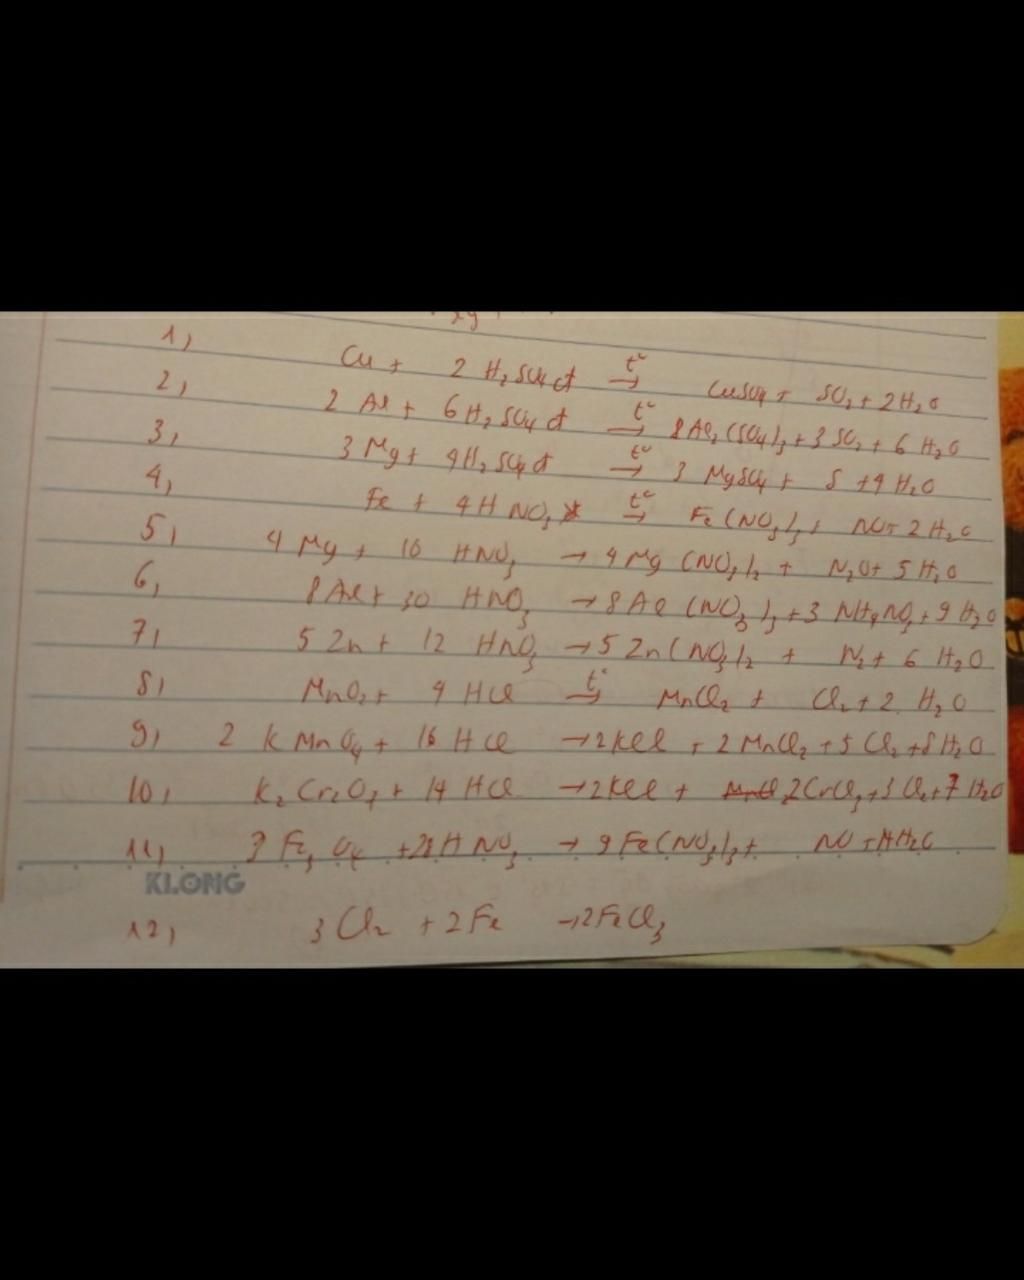 1) Cu + 2 H₂SO₄ đ t° → CuSO₄ + SO₂ + 2H₂O
2, 2 Al + 6H₂SO₄ đ t° → 8Al₂(SO₄)₃ + 3SO₂ + 6 H₂O
3, 3 Mg + 4H₂SO₄ đ t° → 3 MgSO₄ + S + 4 H₂O
4, Fe + 4HNO₃ t° → Fe(NO₃)₃ + NO + 2 H₂O
5, 4 Mg + 10 HNO₃ → 4 Mg (NO₃)₂ + N₂O + 5 H₂O
6, 8Al + 30 HNO₃ → 8Al (NO₃)₃ + 3 NH₄NO₃ + 9 H₂O
7, 5 Zn + 12 HnO₃ → 5 Zn(NO₃)₂ + N₂ + 6 H₂O
8, MnO₂ + 4 HCl t° → MnCl₂ + Cl₂ + 2 H₂O
9, 2 KMnO₄ + 16 HCl → 2KCl + 2 MnCl₂ + 5 Cl₂ + 8 H₂O
10, K₂Cr₂O₇ + 14 HCl → 2KCl + 2CrCl₃ + 3 Cl₂ + 7 H₂O
11, 3 Fe₃O₄ + 28HNO₃ → 9 Fe(NO₃)₃ + NO + 14H₂O
KLONG
12, 3 Cl₂ + 2 Fe → 2FeCl₃